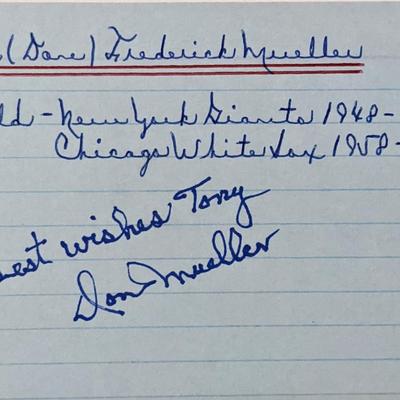 (Done) Frederick Mueller
ld - New York Giants 1948-
Chicago White Sox 1958-
est wishes Tony
Don Mueller